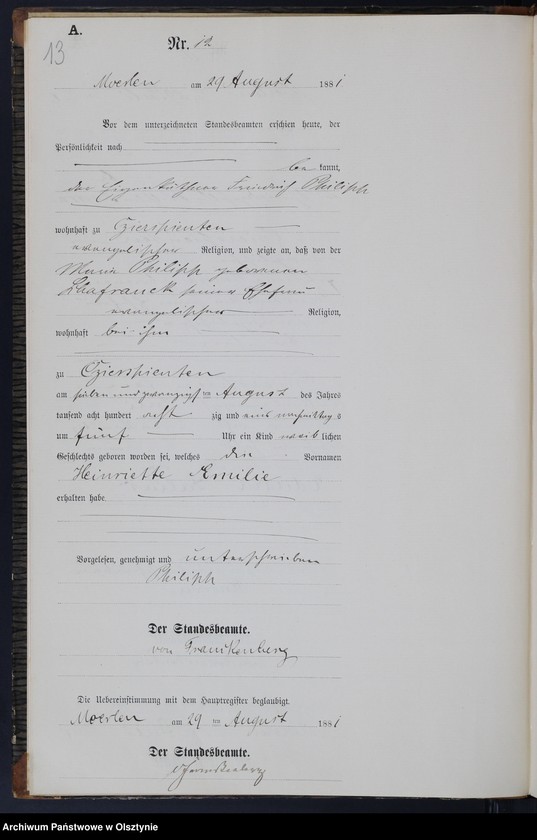 A.
13
Nr. 12
Moerlen am 29 August 1881
Vor dem unterzeichneten Standesbeamten erschien heute, der
Persönlichkeit nach
be kannt,
der Eigenkäthner Friedrich Philipp
wohnhaft zu Czierspienten
evangelischer Religion, und zeigte an, daß von der
Marie Philipp geborenen
seiner Ehefrau
evangelischer Religion,
wohnhaft bei ihm
zu Czierspienten
am sieben und zwanzigsten August des Jahres
tausend acht hundert acht zig und eins nachmittag s
um fünf Uhr ein Kind weib lichen
Geschlechts geboren worden sei, welches die Vornamen
Heinriette Emilie
erhalten habe
Vorgelesen, genehmigt und unterschrieben
Philipp
Der Standesbeamte.
von Frankenberg
Die Uebereinstimmung mit dem Hauptregister beglaubigt.
Moerlen am 29 ten August 1881
Der Standesbeamte.
vFrankenberg
Archiwum Państwowe w Olsztynie